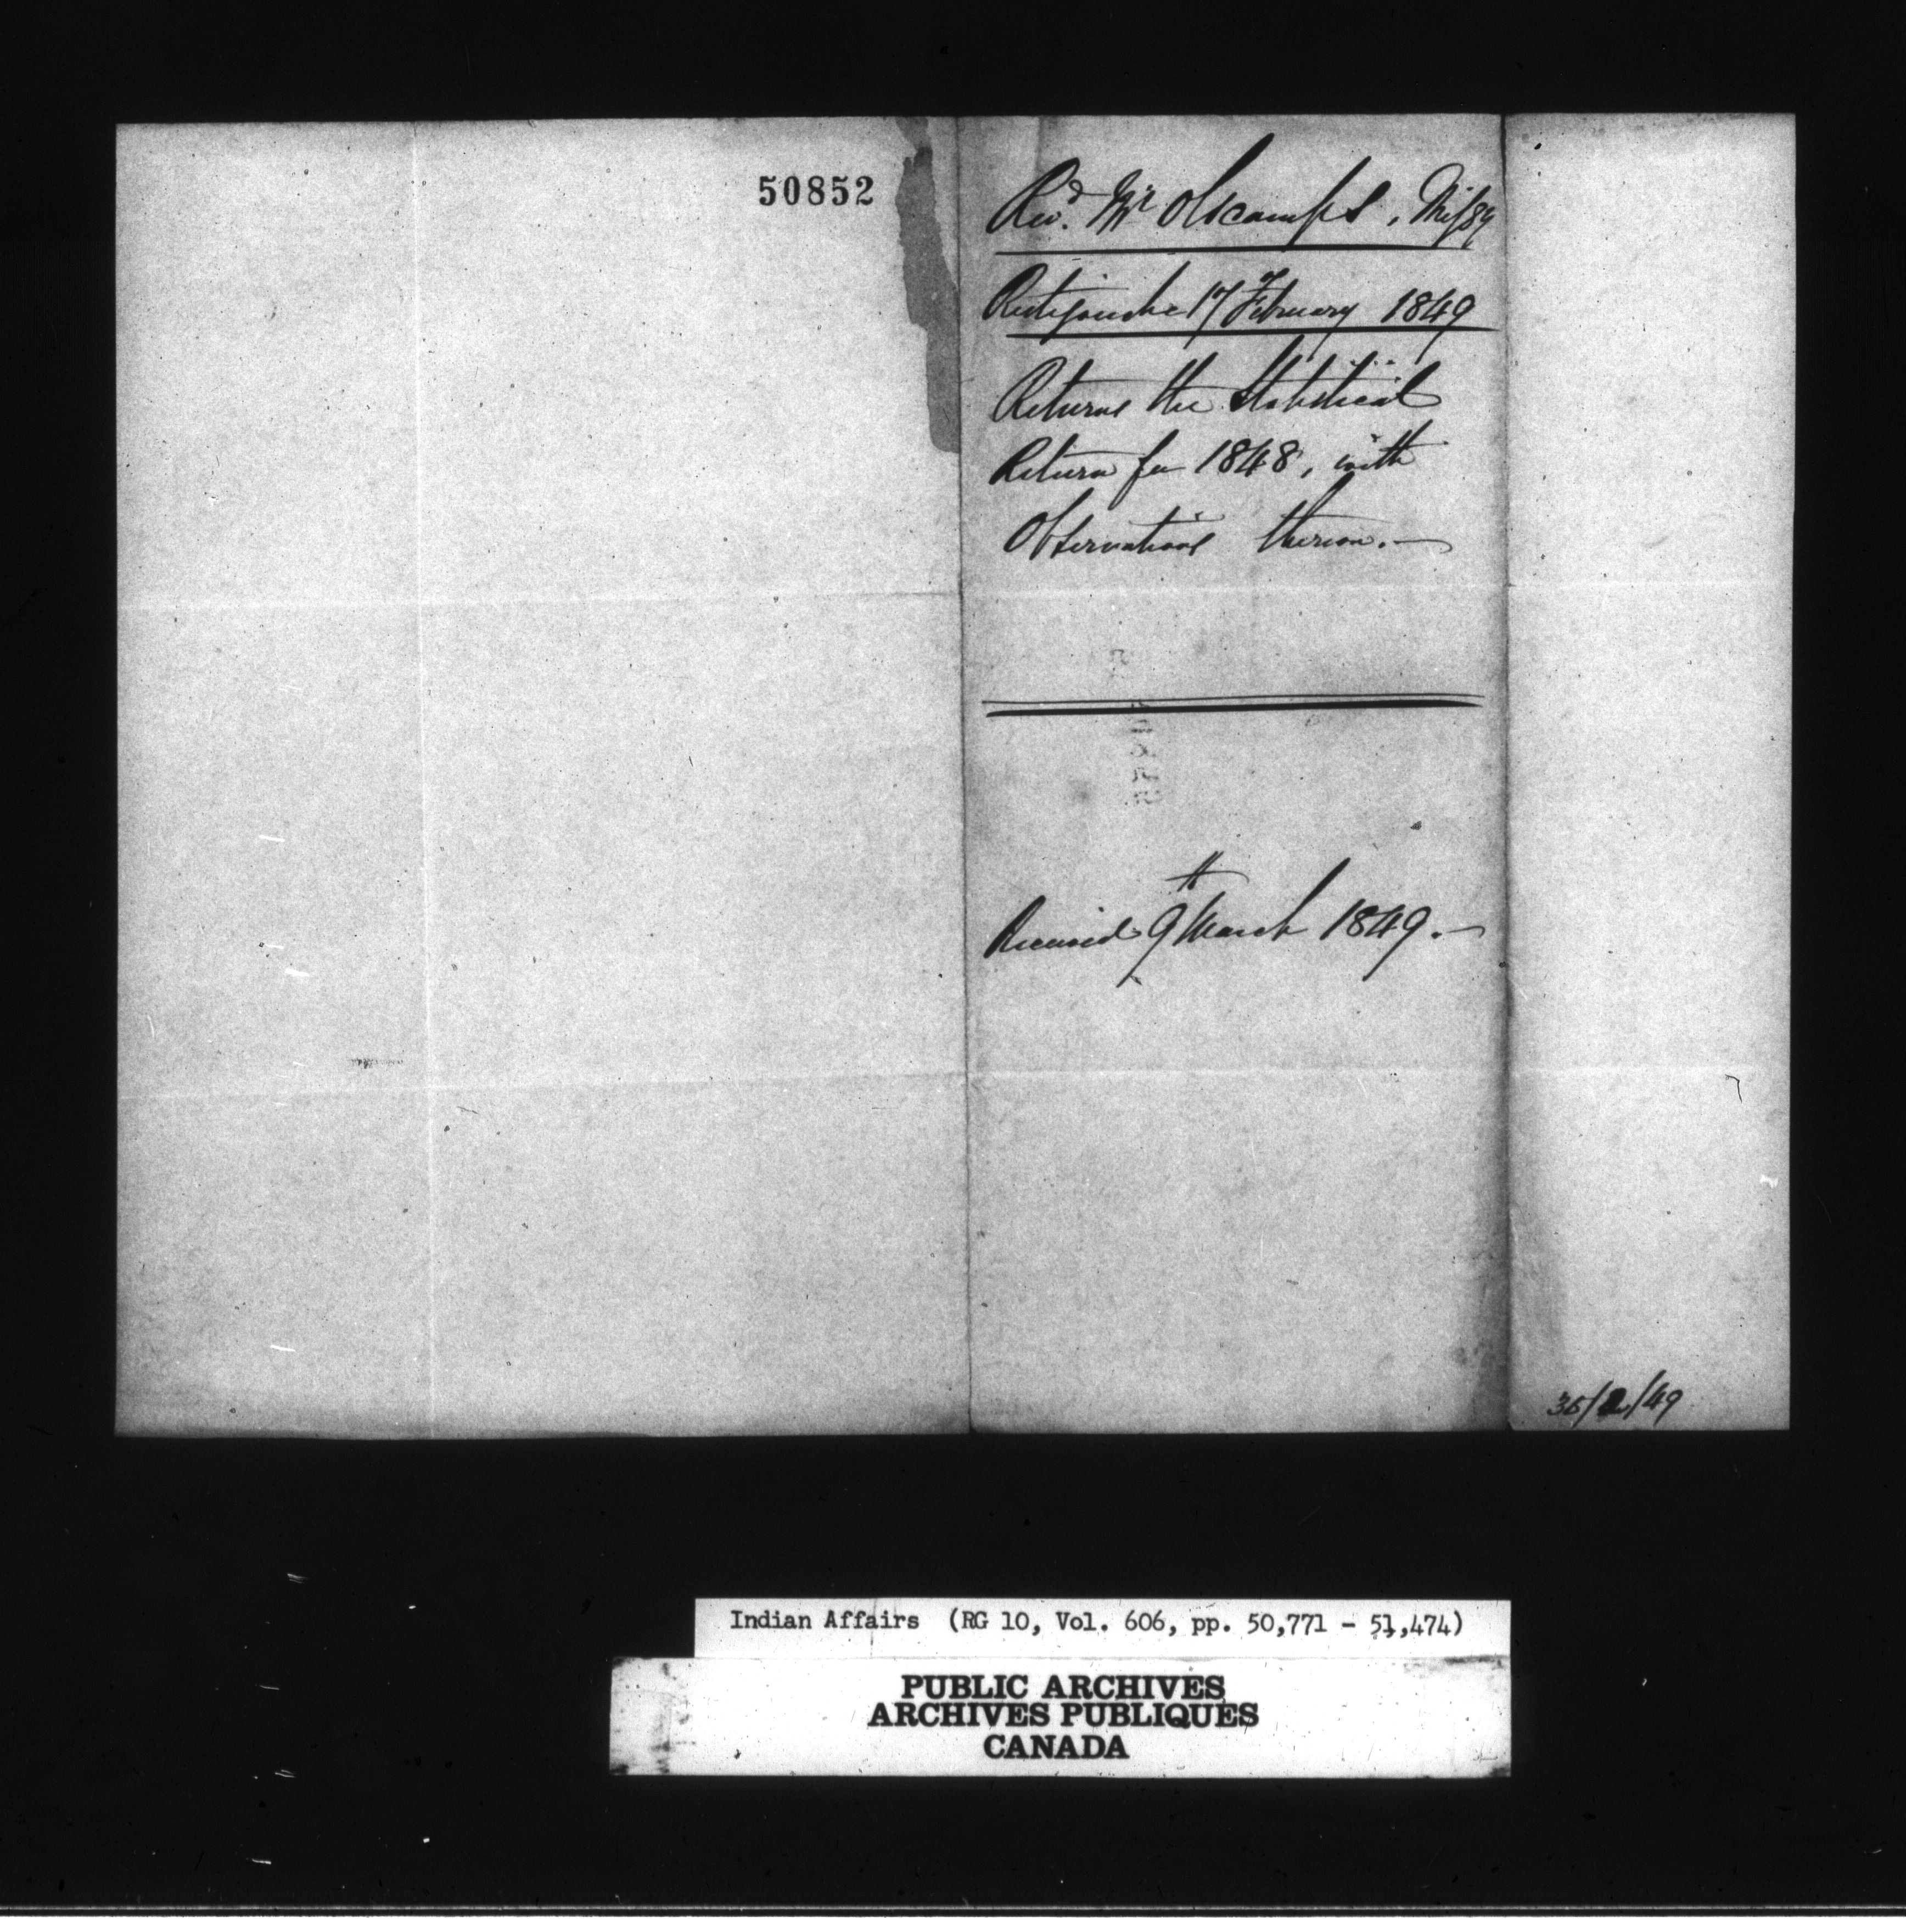 50852
Revd. Mr Olscamps, Missy
Ristigouche 17 February 1849
Returns the Statistical
Return for 1848, with
Observations thereon.—
Received 9th March 1849.—
36/2/49
Indian Affairs (RG 10, Vol. 606, pp. 50,771 - 51,474)
PUBLIC ARCHIVES
ARCHIVES PUBLIQUES
CANADA